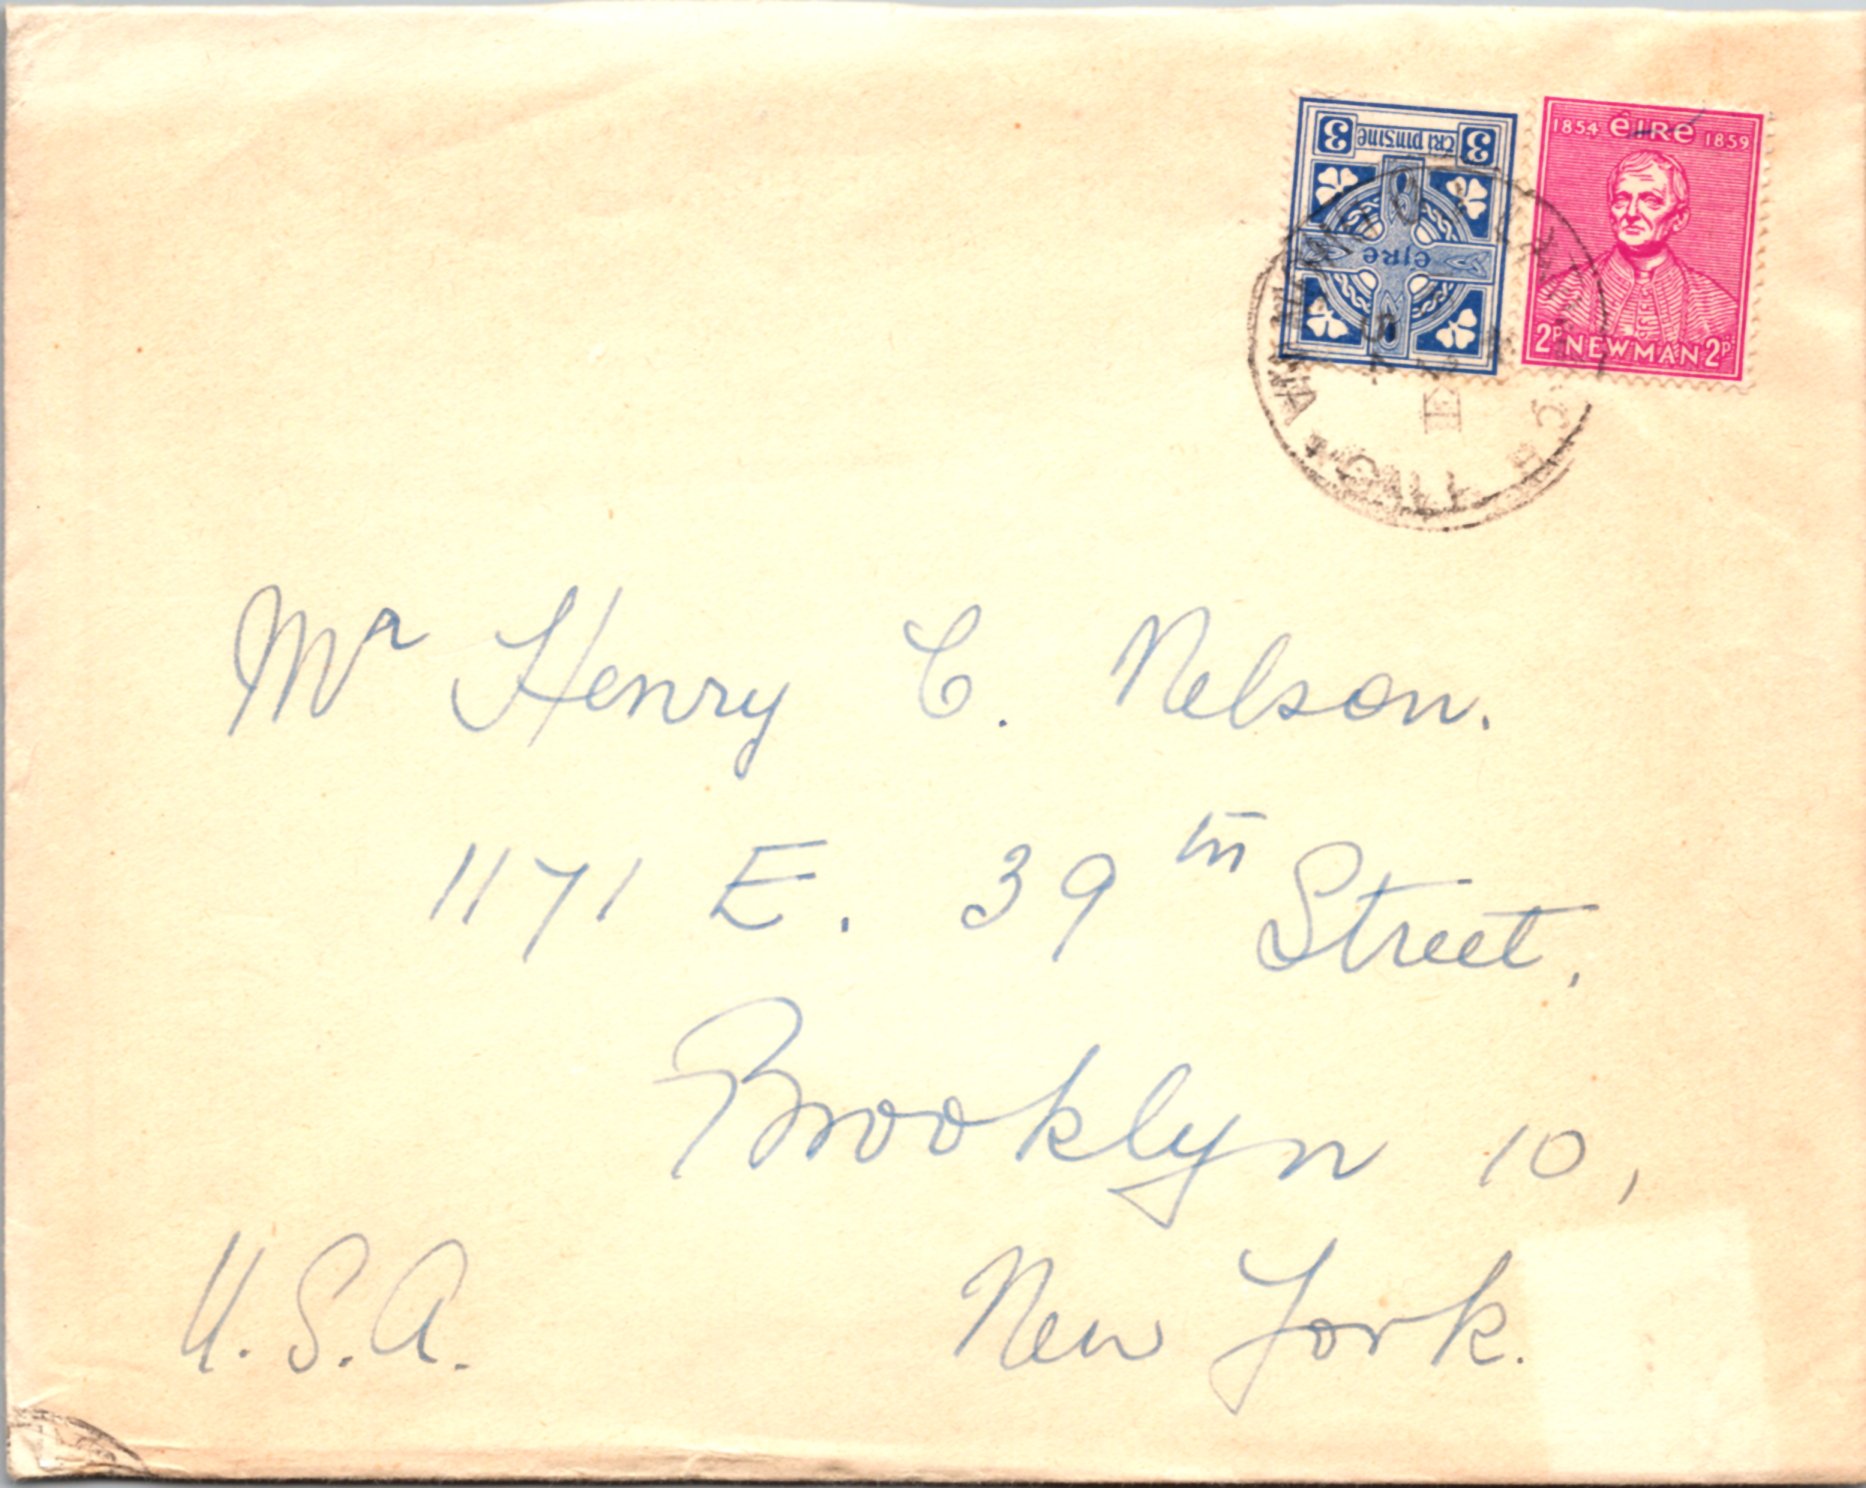 3 TRÍ PINGINE 3
éIRe
1854 éIRe 1859
2P NEWMAN 2P
Mr Henry C. Nelson.
1171 E. 39th Street,
Brooklyn 10,
U.S.A. New York.